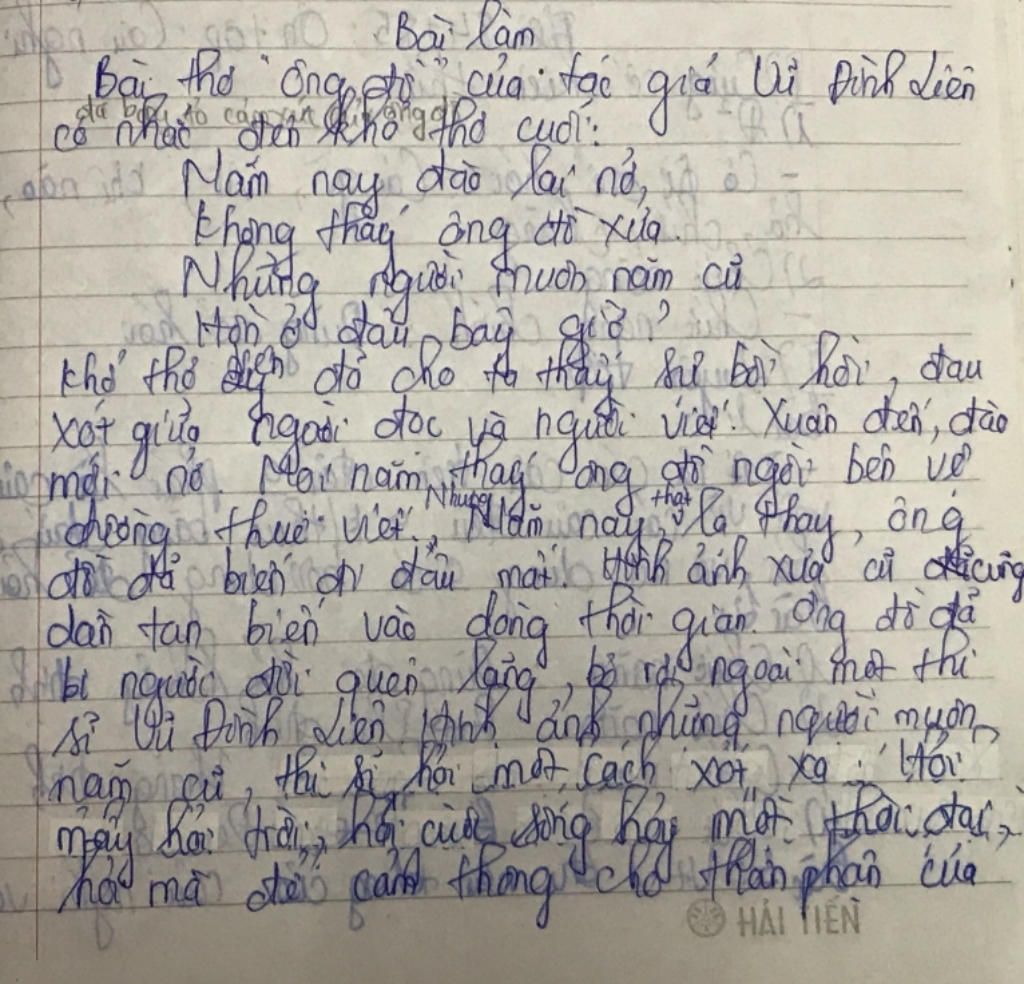 Bài làm
Bài thơ "ông đồ" của tác giả Vũ Đình Liên
đã bày tỏ cảm xúc của ông
có nhắc đến khổ thơ cuối:
Năm nay đào lại nở,
Không thấy ông đồ xưa.
Những người muôn năm cũ
Hồn ở đâu bây giờ?
Khổ thơ đó cho ta thấy sự bồi hồi, đau
xót giữa người đọc và người viết. Xuân đến, đào
mới nở. Mọi năm, thấy ông đồ ngồi bên vỉa
đường thuê viết. Nhưng Năm nay, thật lạ thay, ông
đồ đã biến đi đâu mất. Hình ảnh xưa cũ cũng
dần tan biến vào dòng thời gian. Ông đồ đã
bị người đời quên lãng, bỏ rơi ngoài một thi
sĩ Vũ Đình Liên. Hình ảnh những người muôn
năm cũ, thi sĩ hỏi một cách xót xa: Hỏi
mây hỏi trời, hỏi cuộc sống hay một thời đại,
hỏi mà để cảm thông cho thân phận của
HẢI TIẾN